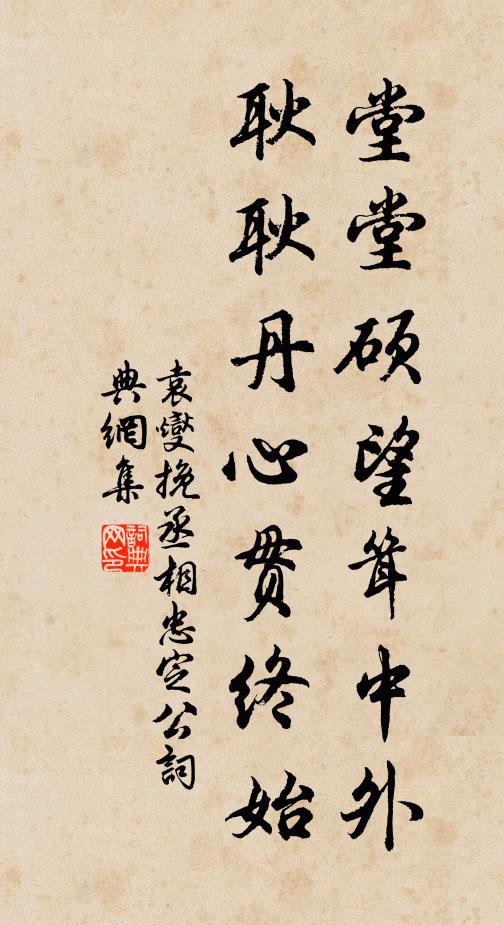 堂堂硕望耸中外
耿耿丹心贯终始
袁燮挽丞相忠定公詞
典網集
詞典網印